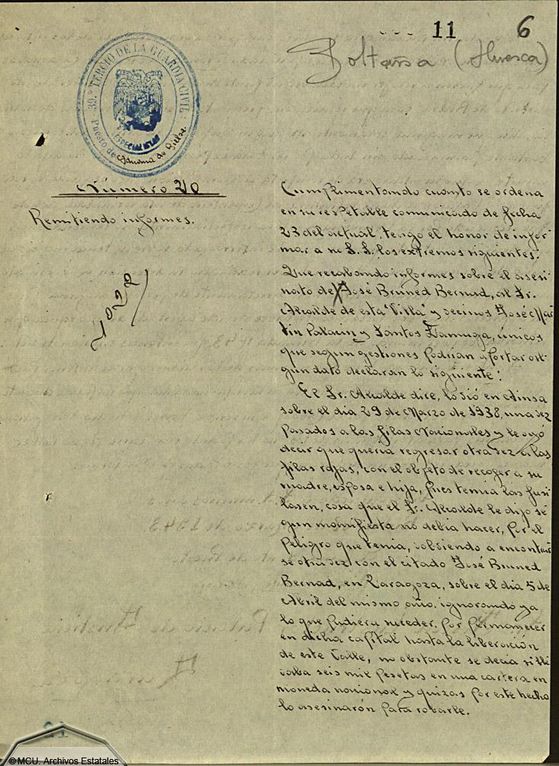 11 6
Boltaña (Huesca)
39.º TERCIO DE LA GUARDIA CIVIL
Puesto de Aduana de Bielsa
ESPECIALISTAS
Número 20
Remitiendo informes.
Cumplimentando cuanto se ordena
en su respetable comunicado de fecha
23 del actual, tengo el honor de infor-
mar a V. S. los extremos siguientes:
Que recabando informes sobre el asesi-
nato de José Bruned Bernad, al Sr.
Alcalde de esta Villa y vecinos José Mar-
tin Palacin y Santos Zamuga, únicos
que segun gestiones podrian aportar al-
gún dato declaran lo siguiente:
El Sr. Alcalde dice, lo vió en Ainsa
sobre el dia 29 de Marzo de 1938, una vez
pasados a las filas Nacionales y le oyó
decir que queria regresar otra vez a las
filas rojas, con el objeto de recoger a su
madre, esposa e hija, pues temia las fusi-
lasen, cosa que el Sr. Alcalde le dijo se-
gun manifiesta no debia hacer, por el
peligro que tenia, volviendo a encontrar-
se otra vez con el citado José Bruned
Bernad, en Zaragoza, sobre el dia 5 de
Abril del mismo año, ignorando ya
lo que pudiera suceder, por permanecer
en dicha capital hasta la liberación
de este Valle, no obstante se decia si lle-
vaba seis mil pesetas en una cartera en
moneda nacional y quizas por este hecho
lo asesinarón para robarle.
© MCU. Archivos Estatales